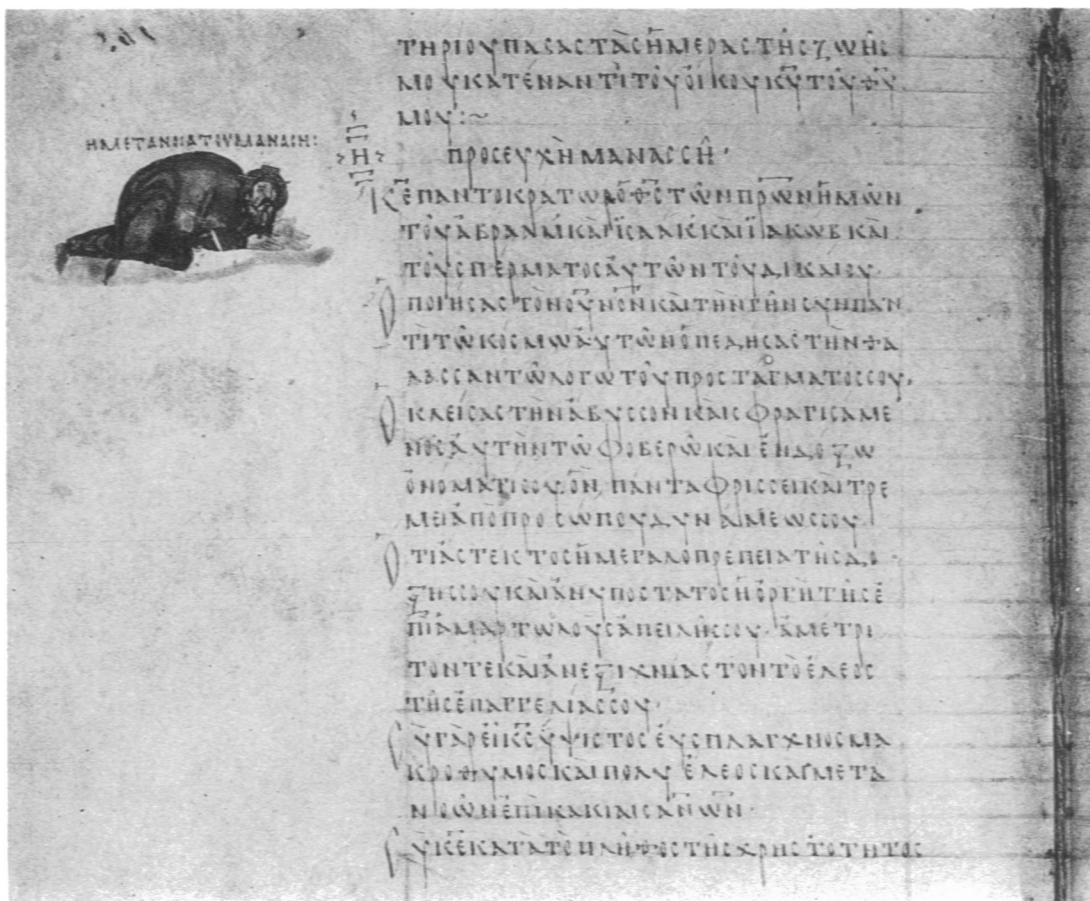 Η ΜΕΤΑΝΥΑ ΤΟΥ ΜΑΝΑΣΗ:
ΤΗΡΙΟΥ ΠΑΣΑΣ ΤᾺΣ ΗΜΕΡΑΣ ΤΗΣ ΖΩΗΣ
ΜΟΥ ΚΑΤΕΝΑΝΤΙ ΤΟΥ ΟΙΚΟΥ ΚΥ ΤΟΥ ΘΥ
ΜΟΥ:~
Η ΠΡΟΣΕΥΧΗ ΜΑΝΑΣΣΗ·
ΚΕ ΠΑΝΤΟΚΡΑΤΩΡ Ο ΘΣ ΤΩΝ ΠΡΩΝ ΗΜΩΝ
ΤΟΥ ΑΒΡΑΑΜ ΚΑΙ ΙΣΑΑΚ ΚΑΙ ΙΑΚΩΒ ΚΑΙ
ΤΟΥ ΣΠΕΡΜΑΤΟΣ ΑΥΤΩΝ ΤΟΥ ΔΙΚΑΙΟΥ·
Ο ΠΟΙΗΣΑΣ ΤΟΝ ΟΥΝΟΝ ΚΑΙ ΤΗΝ ΓΗΝ ΣΥΝ ΠΑΝ
ΤΙ ΤΩ ΚΟΣΜΩ ΑΥΤΩΝ Ο ΠΕΔΗΣΑΣ ΤΗΝ ΘΑ
ΛΑΣΣΑΝ ΤΩ ΛΟΓΩ ΤΟΥ ΠΡΟΣΤΑΓΜΑΤΟΣ ΣΟΥ·
Ο ΚΛΕΙΣΑΣ ΤΗΝ ΑΒΥΣΣΟΝ ΚΑΙ ΣΦΡΑΓΙΣΑΜΕ
ΝΟΣ ΑΥΤΗΝ ΤΩ ΦΟΒΕΡΩ ΚΑΙ ΕΝΔΟΞΩ
ΟΝΟΜΑΤΙ ΣΟΥ· ΟΝ ΠΑΝΤΑ ΦΡΙΣΣΕΙ ΚΑΙ ΤΡΕ
ΜΕΙ ΑΠΟ ΠΡΟΣΩΠΟΥ ΔΥΝΑΜΕΩΣ ΣΟΥ
ΟΤΙ ΑΣΤΕΚΤΟΣ Η ΜΕΓΑΛΟΠΡΕΠΕΙΑ ΤΗΣ ΔΟ
ΞΗΣ ΣΟΥ ΚΑΙ ΑΝΥΠΟΣΤΑΤΟΣ Η ΟΡΓΗ ΤΗΣ Ε
ΠΙ ΑΜΑΡΤΩΛΟΥΣ ΑΠΕΙΛΗΣ ΣΟΥ· ΑΜΕΤΡΙ
ΤΟΝ ΤΕ ΚΑΙ ΑΝΕΞΙΧΝΙΑΣΤΟΝ ΤΟ ΕΛΕΟΣ
ΤΗΣ ΕΠΑΓΓΕΛΙΑΣ ΣΟΥ·
ΣΥ ΓΑΡ ΕΙ ΚΣ ΥΨΙΣΤΟΣ ΕΥΣΠΛΑΓΧΝΟΣ ΜΑ
ΚΡΟΘΥΜΟΣ ΚΑΙ ΠΟΛΥΕΛΕΟΣ ΚΑΙ ΜΕΤΑ
ΝΟΩΝ ΕΠΙ ΚΑΚΙΑΙΣ ΑΝΩΝ·
ΣΥ ΚΕ ΚΑΤΑ ΤΟ ΠΛΗΘΟΣ ΤΗΣ ΧΡΗΣΤΟΤΗΤΟΣ